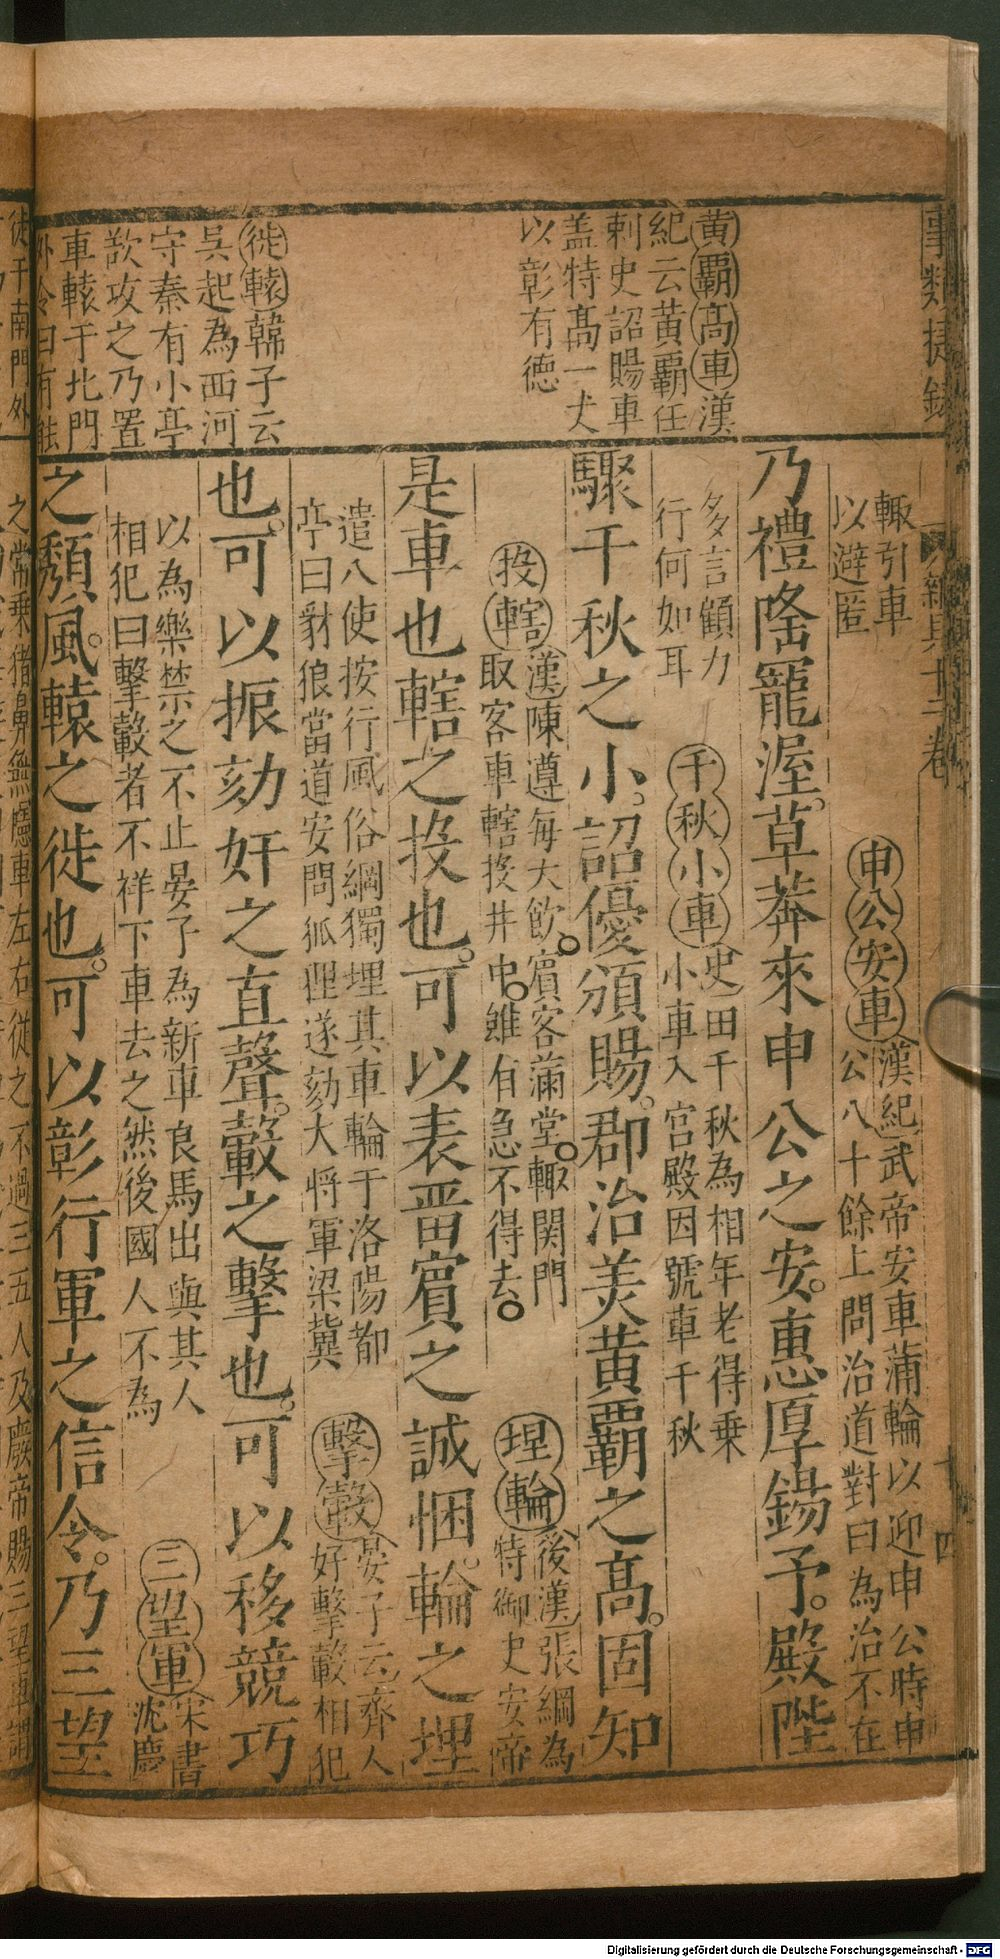 事類捷錄
黃霸高車漢
紀云黃霸任
刺史詔賜車
盖特高一丈
以彰有德
徙轅韓子云
吳起為西河
守秦有小亭
欲攻之乃置
車轅于北門
外令曰有能
徒于南門外
輙引車
以避匿
申公安車漢紀武帝安車蒲輪以迎申公時申
公八十餘上問治道對曰為治不在
乃禮隆寵渥草莽來申公之安惠厚錫予殿陛
多言顧力
行何如耳
千秋小車史田千秋為相年老得乗
小車入宮殿因號車千秋
驟千秋之小詔優頒賜郡治美黃霸之高固知
投轄漢陳遵每大飲賓客滿堂輙関門
取客車轄投井中雖有急不得去
埋輪後漢張綱為
侍御史安帝
是車也轄之投也可以表畱賓之誠悃輪之埋
遣八使按行風俗綱獨埋其車輪于洛陽都
亭曰豺狼當道安問狐狸遂劾大将軍梁冀
擊轂晏子云齊人
好擊轂相犯
也可以振劾奸之直聲轂之擊也可以移競巧
以為樂禁之不止晏子為新車良馬出與其人
相犯曰擊轂者不祥下車去之然後國人不為
三望車宋書
沈慶
之頽風轅之徙也可以彰行軍之信令乃三望
之常乗猪鼻無隱車左右從之不過三五人及廢帝賜三望車謂
Digitalisierung gefördert durch die Deutsche Forschungsgemeinschaft - DFG